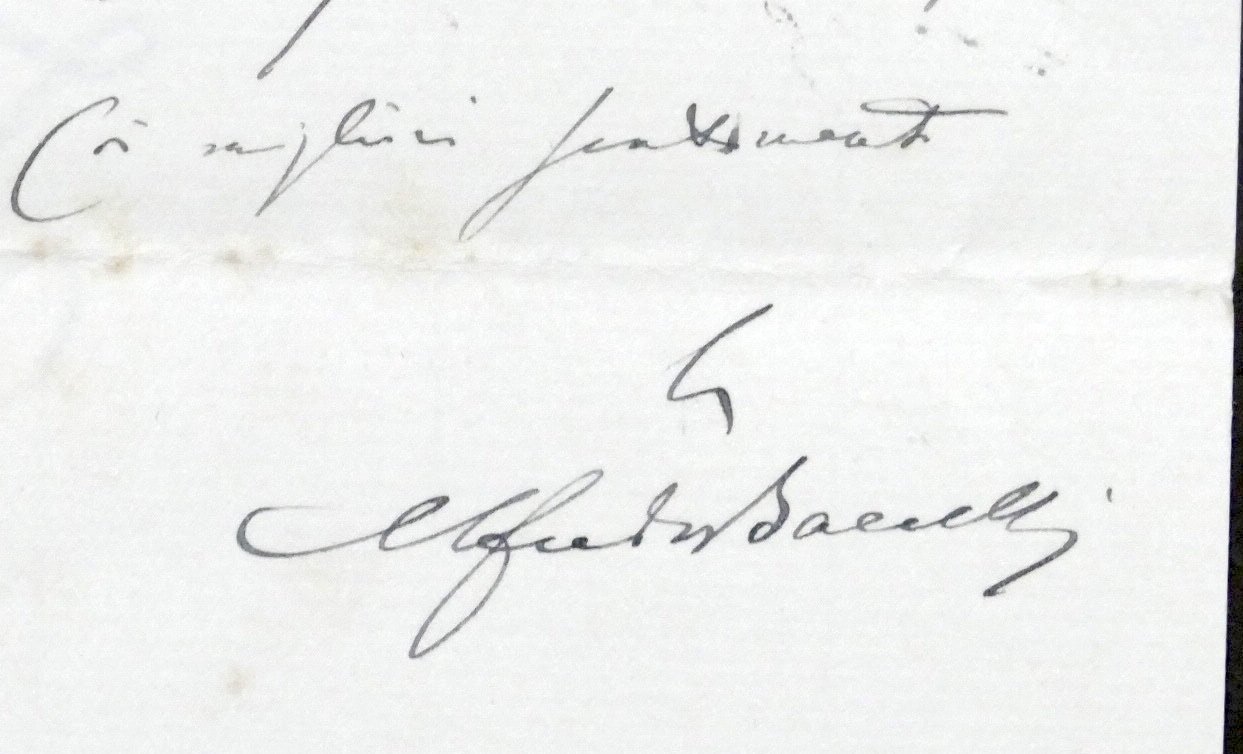 Coi migliori sentimenti
Alfredo Baccelli